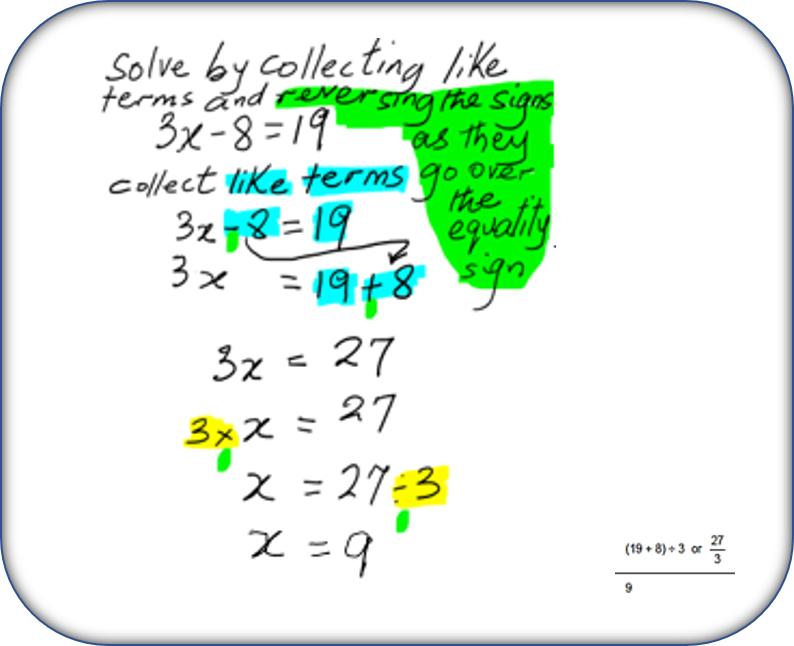 Solve by collecting like
terms and reversing the signs
3x-8=19 as they
collect like terms go over
the
3x-8=19 equality
3x =19+8 sign
3x = 27
3×x = 27
x = 27÷3
x = 9
(19 + 8) ÷ 3 or 27/3
9